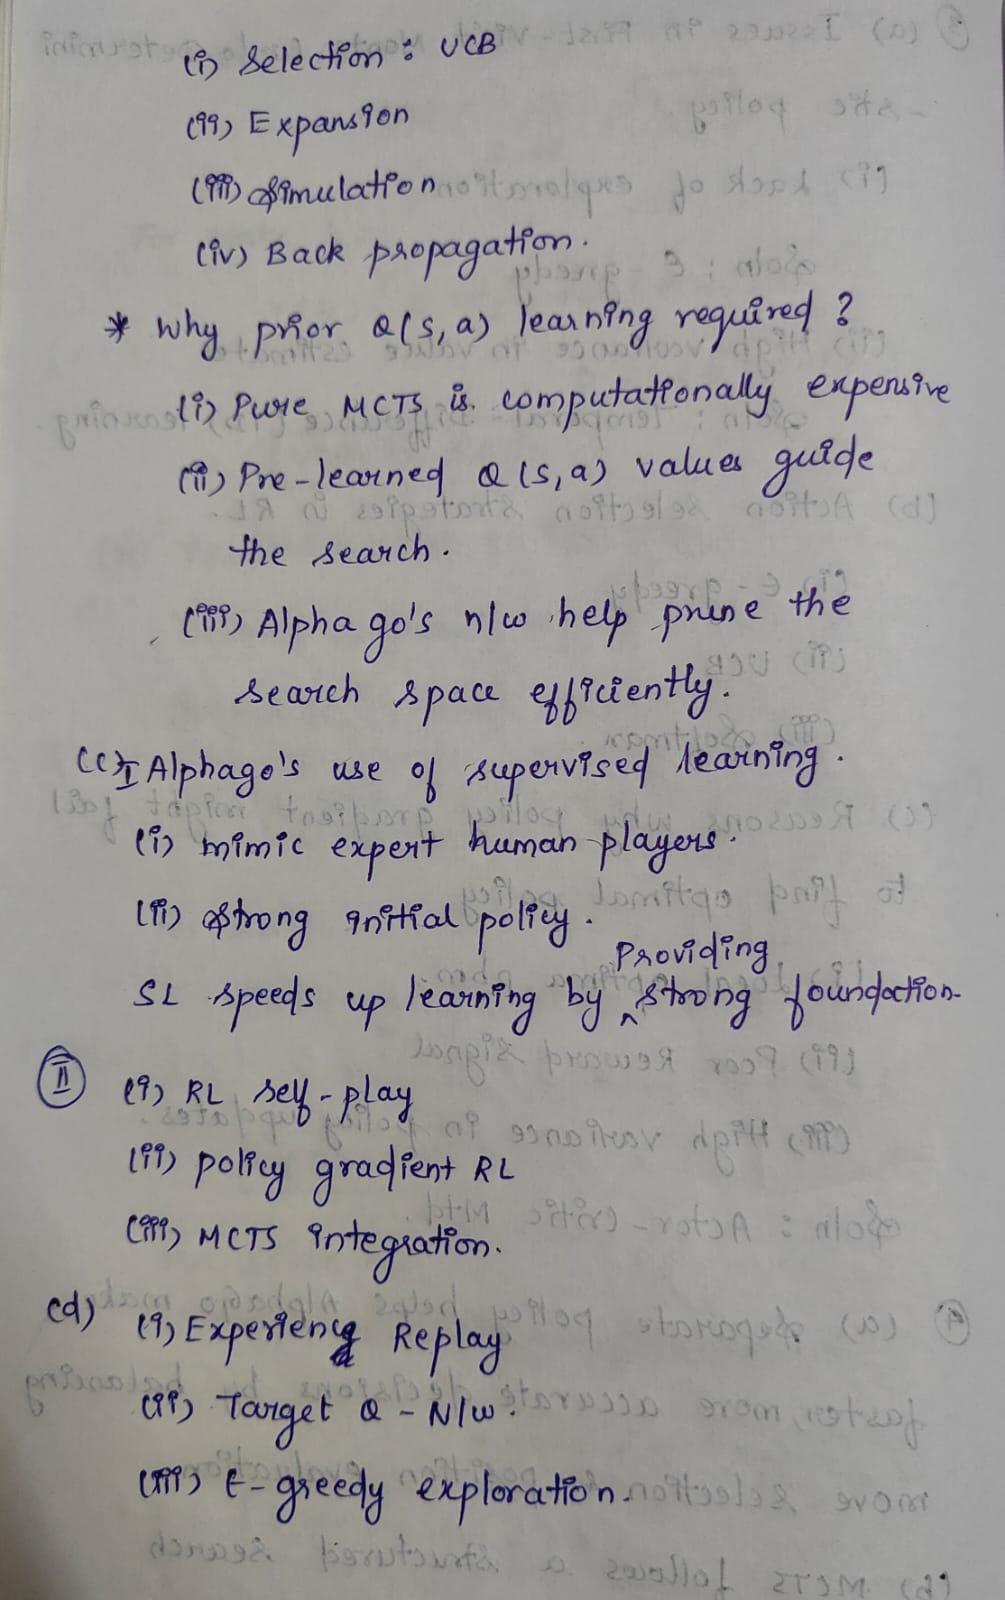 (i) Selection : UCB
(ii) Expansion
(iii) Simulation
(iv) Back propagation.
* Why prior Q(s,a) learning required ?
(i) Pure MCTS is computationally expensive
(ii) Pre-learned Q(s,a) values guide
the search.
(iii) Alpha go's n/w help prune the
search space efficiently.
(c) I Alphago's use of supervised learning.
(i) mimic expert human players.
(ii) Strong initial policy.
Providing
SL speeds up learning by ^ strong foundation
II (i) RL self-play
(ii) policy gradient RL
(iii) MCTS integration.
(d) (i) Experience Replay
(ii) Target Q-N/w.
(iii) E-greedy exploration.